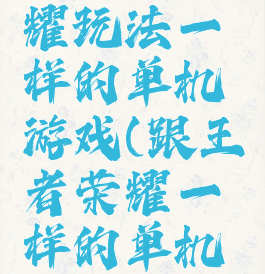 耀玩法一
样的单机
游戏(跟王
者荣耀一
样的单机